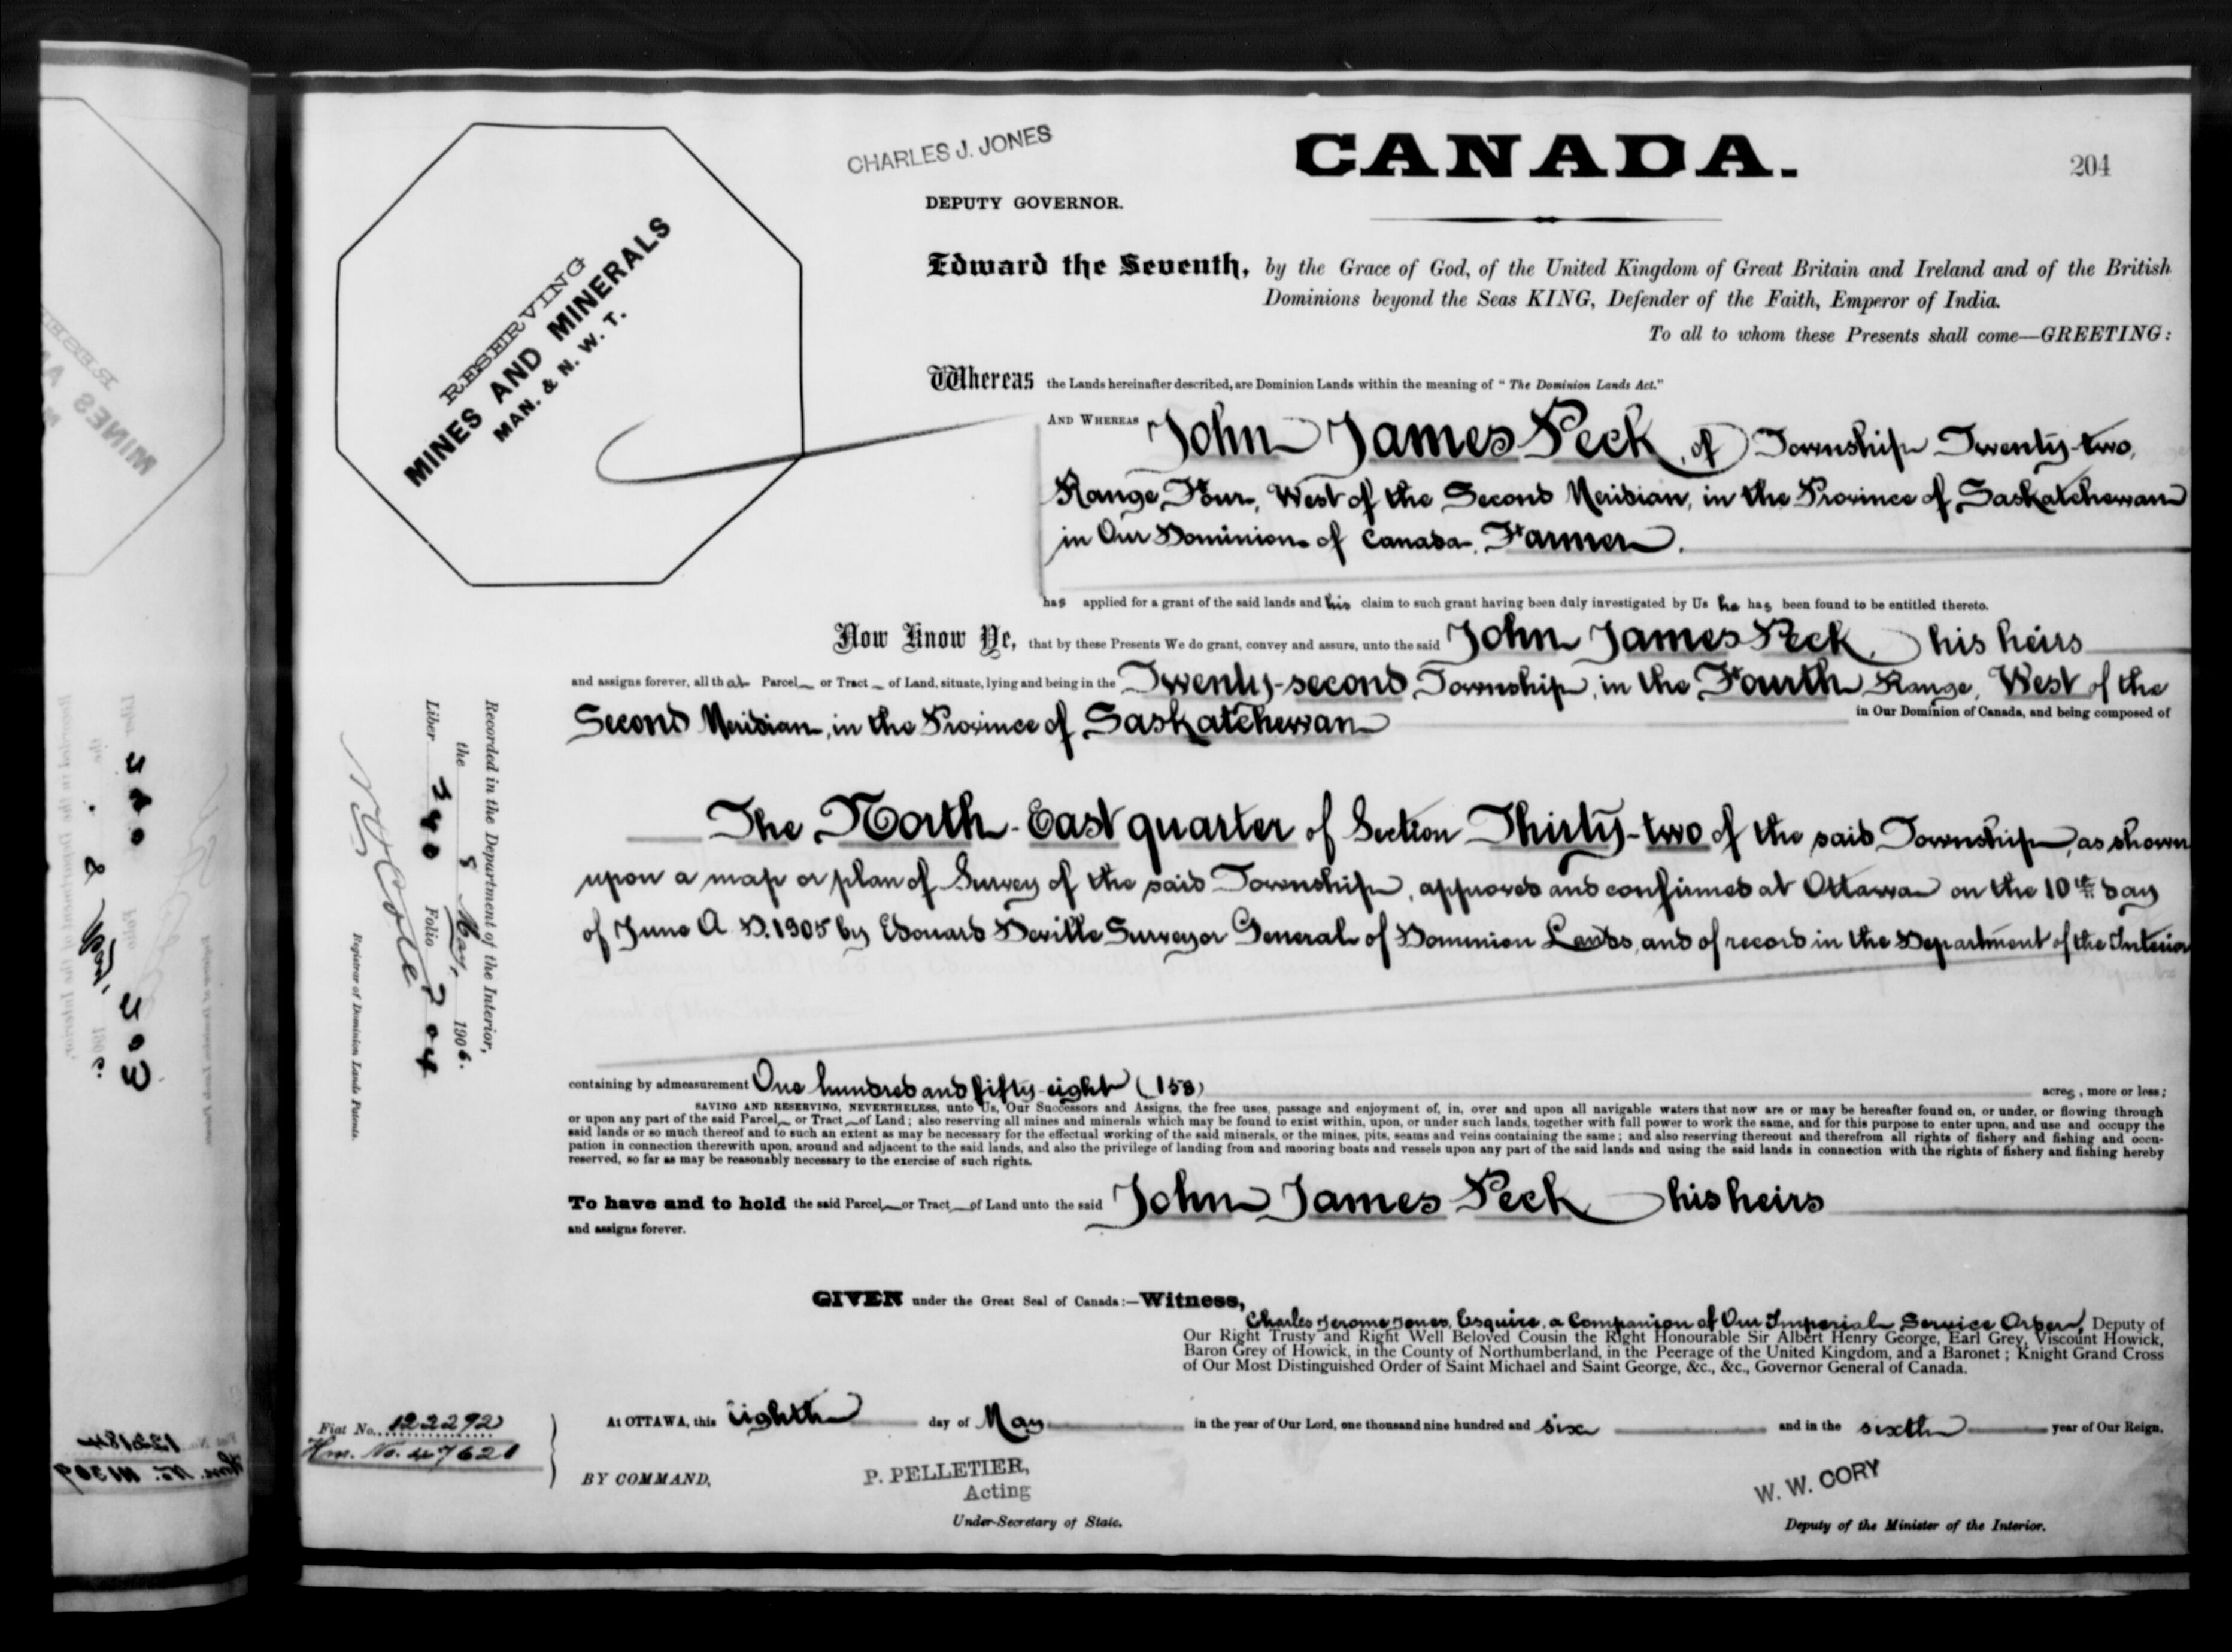 CHARLES J. JONES
CANADA.
204
DEPUTY GOVERNOR.
RESERVING
MINES AND MINERALS
MAN. & N. W. T.
Edward the Seventh, by the Grace of God, of the United Kingdom of Great Britain and Ireland and of the British
Dominions beyond the Seas KING, Defender of the Faith, Emperor of India.
To all to whom these Presents shall come—GREETING:
Whereas the Lands hereinafter described, are Dominion Lands within the meaning of "The Dominion Lands Act."
AND WHEREAS John James Peck, of Township Twenty-two,
Range Four, West of the Second Meridian, in the Province of Saskatchewan
in Our Dominion of Canada, Farmer.
has applied for a grant of the said lands and his claim to such grant having been duly investigated by Us he has been found to be entitled thereto.
Now Know Ye, that by these Presents We do grant, convey and assure, unto the said John James Peck, his heirs
and assigns forever, all that Parcel or Tract of Land, situate, lying and being in the Twenty-second Township, in the Fourth Range, West of the
Second Meridian, in the Province of Saskatchewan in Our Dominion of Canada, and being composed of
The North-East quarter of Section Thirty-two of the said Township, as shown
upon a map or plan of Survey of the said Township, approved and confirmed at Ottawa on the 10th day
of June A.D. 1905 by Edouard Deville Surveyor General of Dominion Lands, and of record in the Department of the Interior
containing by admeasurement One hundred and fifty-eight (158) acres, more or less;
SAVING AND RESERVING, NEVERTHELESS, unto Us, Our Successors and Assigns, the free uses, passage and enjoyment of, in, over and upon all navigable waters that now are or may be hereafter found on, or under, or flowing through
or upon any part of the said Parcel or Tract of Land; also reserving all mines and minerals which may be found to exist within, upon, or under such lands, together with full power to work the same, and for this purpose to enter upon, and use and occupy the
said lands or so much thereof and to such an extent as may be necessary for the effectual working of the said minerals, or the mines, pits, seams and veins containing the same; and also reserving thereout and therefrom all rights of fishery and fishing and occu-
pation in connection therewith upon, around and adjacent to the said lands, and also the privilege of landing from and mooring boats and vessels upon any part of the said lands and using the said lands in connection with the rights of fishery and fishing hereby
reserved, so far as may be reasonably necessary to the exercise of such rights.
To have and to hold the said Parcel or Tract of Land unto the said John James Peck his heirs
and assigns forever.
GIVEN under the Great Seal of Canada:—Witness,
Charles Jerome Jones, Esquire, a Companion of Our Imperial Service Order, Deputy of
Our Right Trusty and Right Well Beloved Cousin the Right Honourable Sir Albert Henry George, Earl Grey, Viscount Howick,
Baron Grey of Howick, in the County of Northumberland, in the Peerage of the United Kingdom, and a Baronet; Knight Grand Cross
of Our Most Distinguished Order of Saint Michael and Saint George, &c., &c., Governor General of Canada.
At OTTAWA, this eighth day of May in the year of Our Lord, one thousand nine hundred and six and in the sixth year of Our Reign.
BY COMMAND,
P. PELLETIER,
Acting
Under-Secretary of State.
W. W. CORY
Deputy of the Minister of the Interior.
Fiat No. 122292
Hm. No. 47621
Recorded in the Department of the Interior,
the 8 May, 1906.
Liber 340 Folio 204
Cote
Registrar of Dominion Lands Patents.